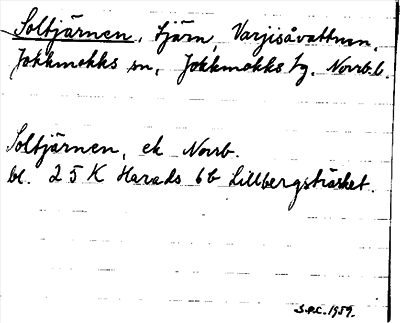 Soltjärnen, tjärn, Varjisåvattnen,
Jokkmokks sn, Jokkmokks tg. Norrb.l.
Soltjärnen, ek Norrb.
bl. 25 K Harads 6b Lillbergsträsket.
S.P.C. 1959.